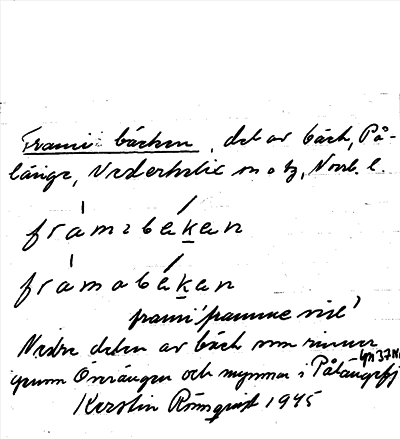 Frami bäcken, del av bäck, På-
länge, Nederkalix sn o tg, Norrb. l.
framibäkan
framabäkan
frami 'framme vid'
Nedre delen av bäck som rinner
genom Önrängen och mynnar i Pålängefj
Kerstin Rönnqvist 1945